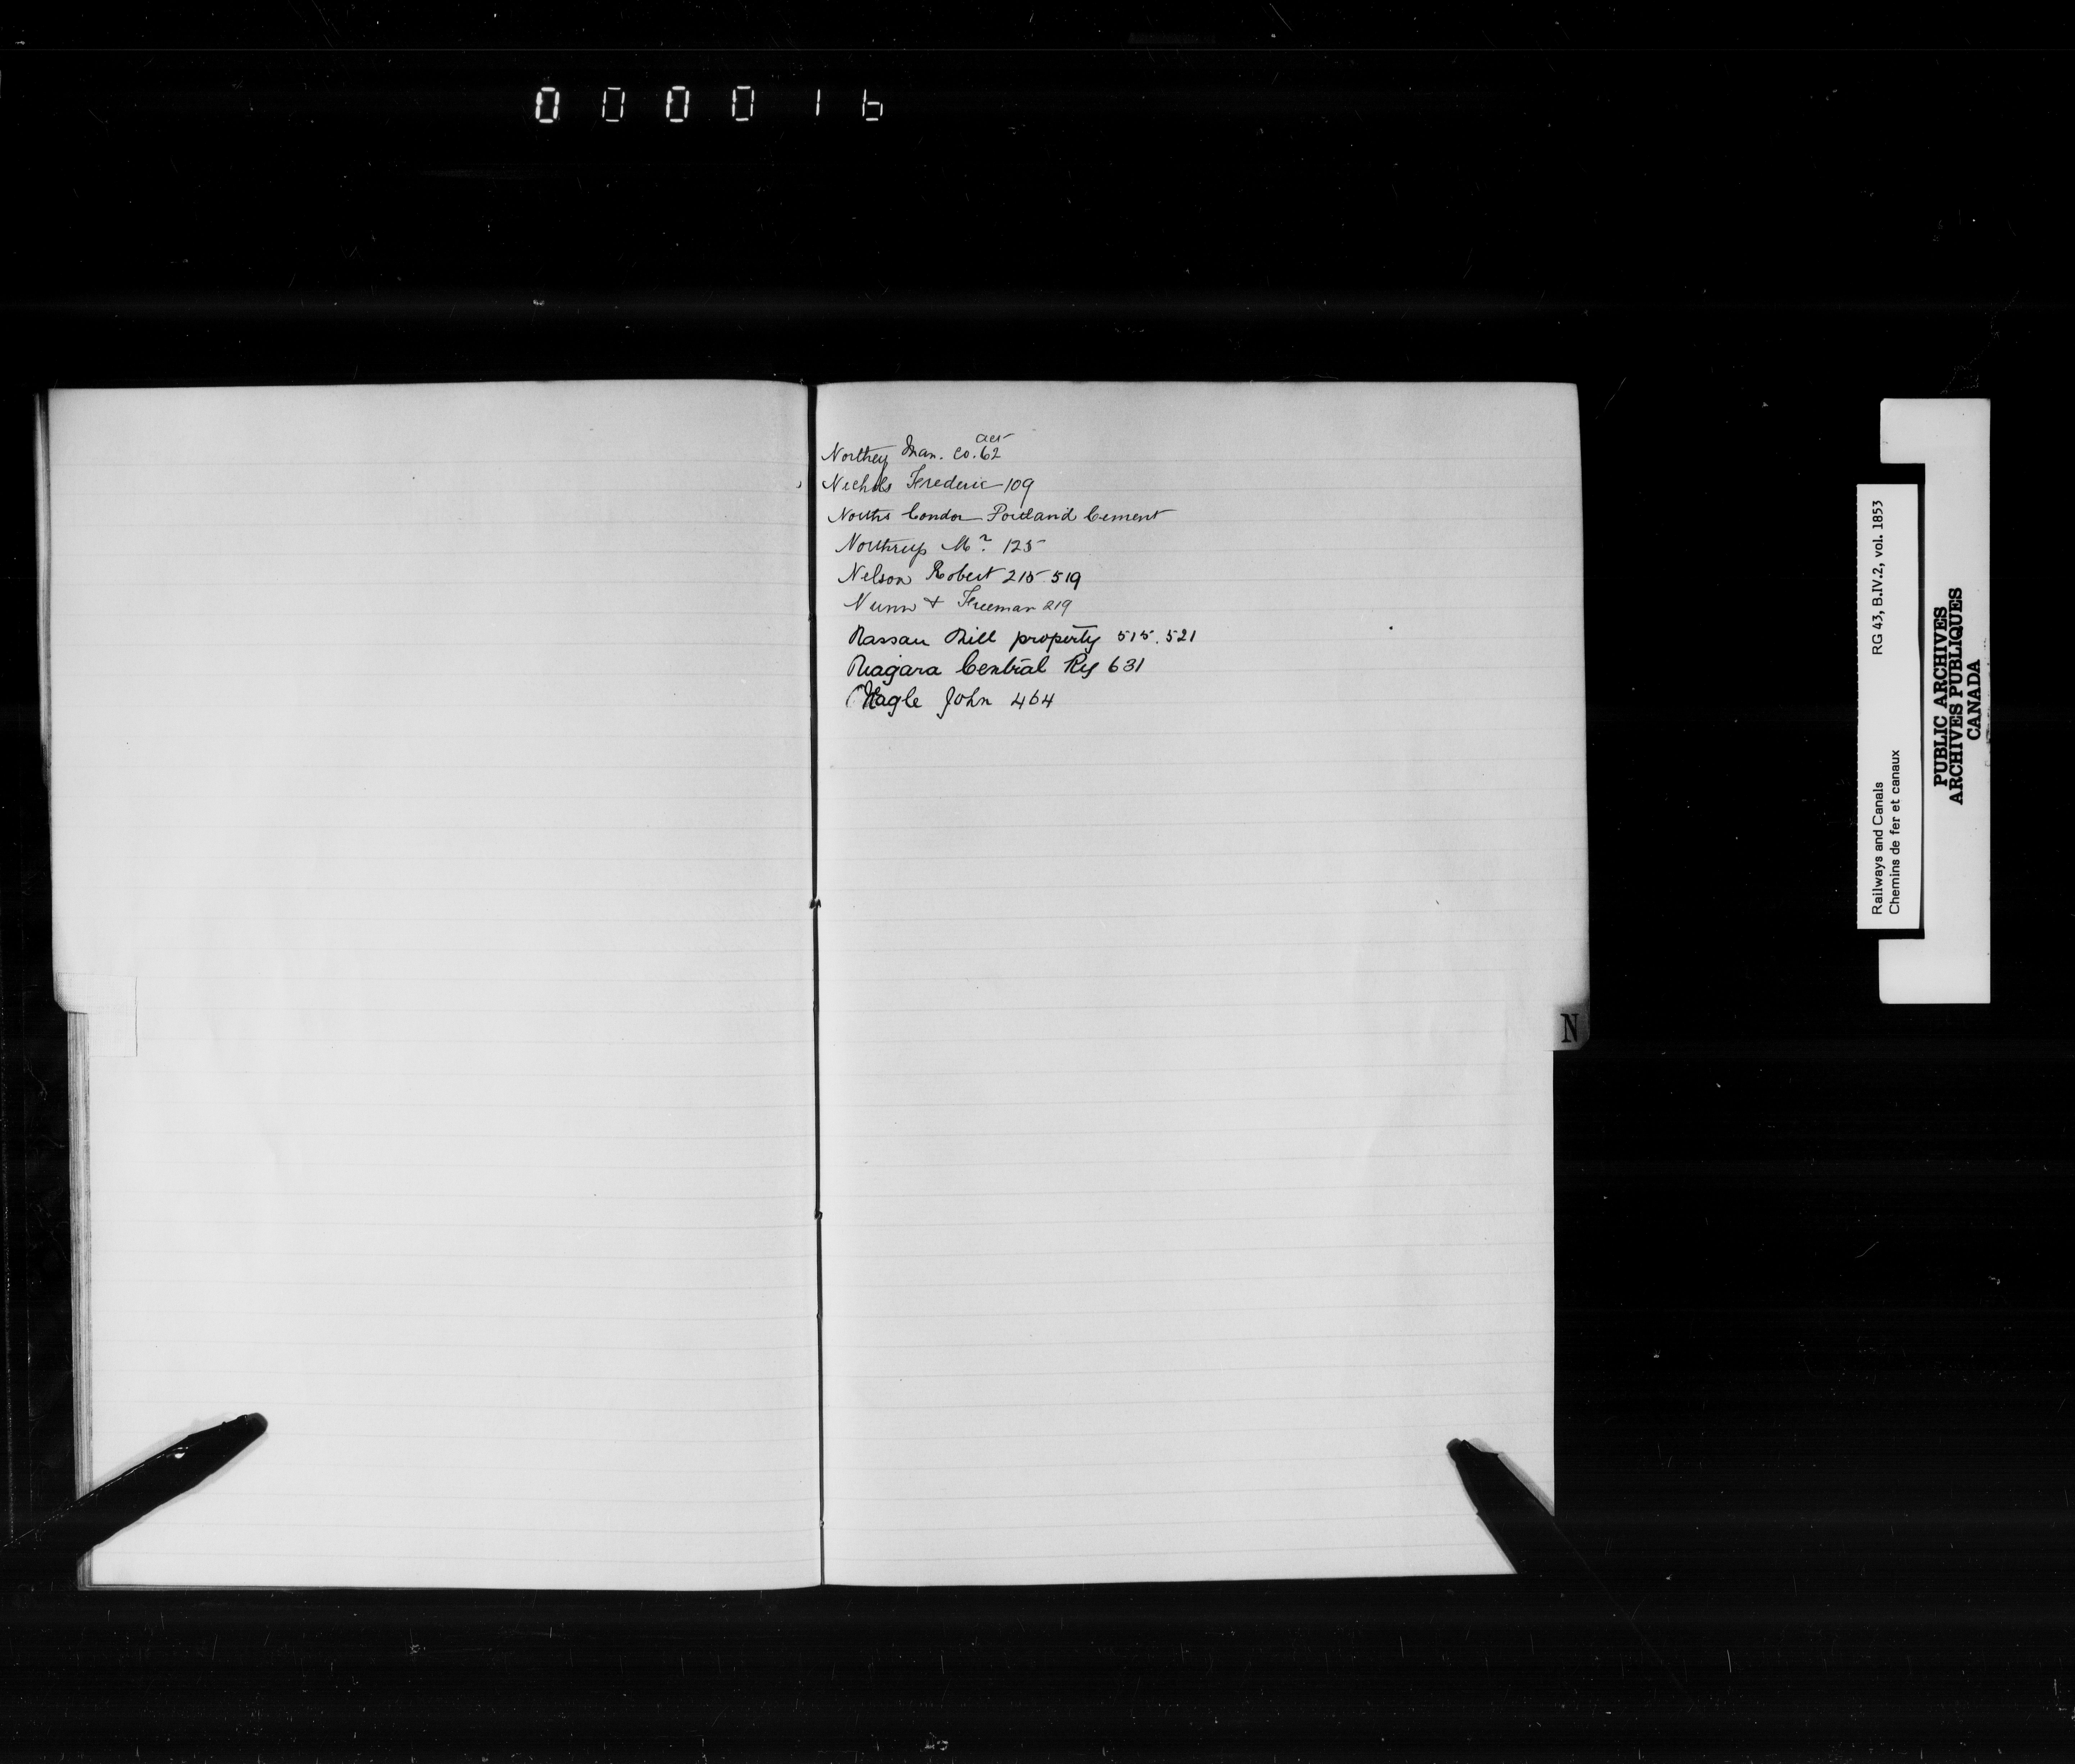 000016
acr
Northey Man. Co. 62
Nichols Frederic 109
Norths Condor Portland Cement
Northrup Mr. 125
Nelson Robert 215. 519
Nunn & Freeman 219
Nassau Mill property 515. 521
Niagara Central Ry 631
Nagle John 464
N
Railways and Canals RG 43, B.IV.2, vol. 1853
Chemins de fer et canaux
PUBLIC ARCHIVES
ARCHIVES PUBLIQUES
CANADA